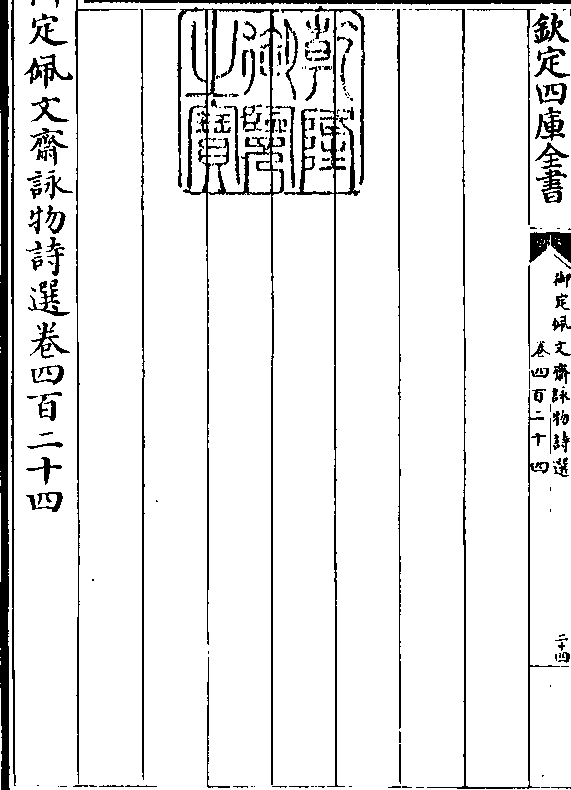 欽定四庫全書
御定佩文齋詠物詩選
卷四百二十四
二十四
乾隆
御覽
之寶
御定佩文齋詠物詩選卷四百二十四